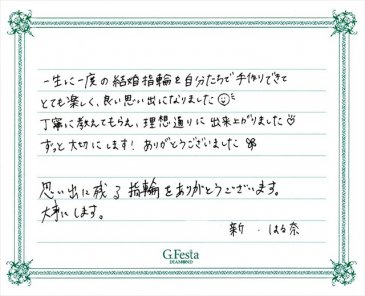 一生に一度の結婚指輪を自分たちで手作りできて
とても楽しく、良い思い出になりました
丁寧に教えてもらえ、理想通りに出来上がりました
ずっと大切にします！ ありがとうございました
思い出に残る指輪をありがとうございます。
大事にします。
新 ・ はる奈
G.Festa
DIAMOND